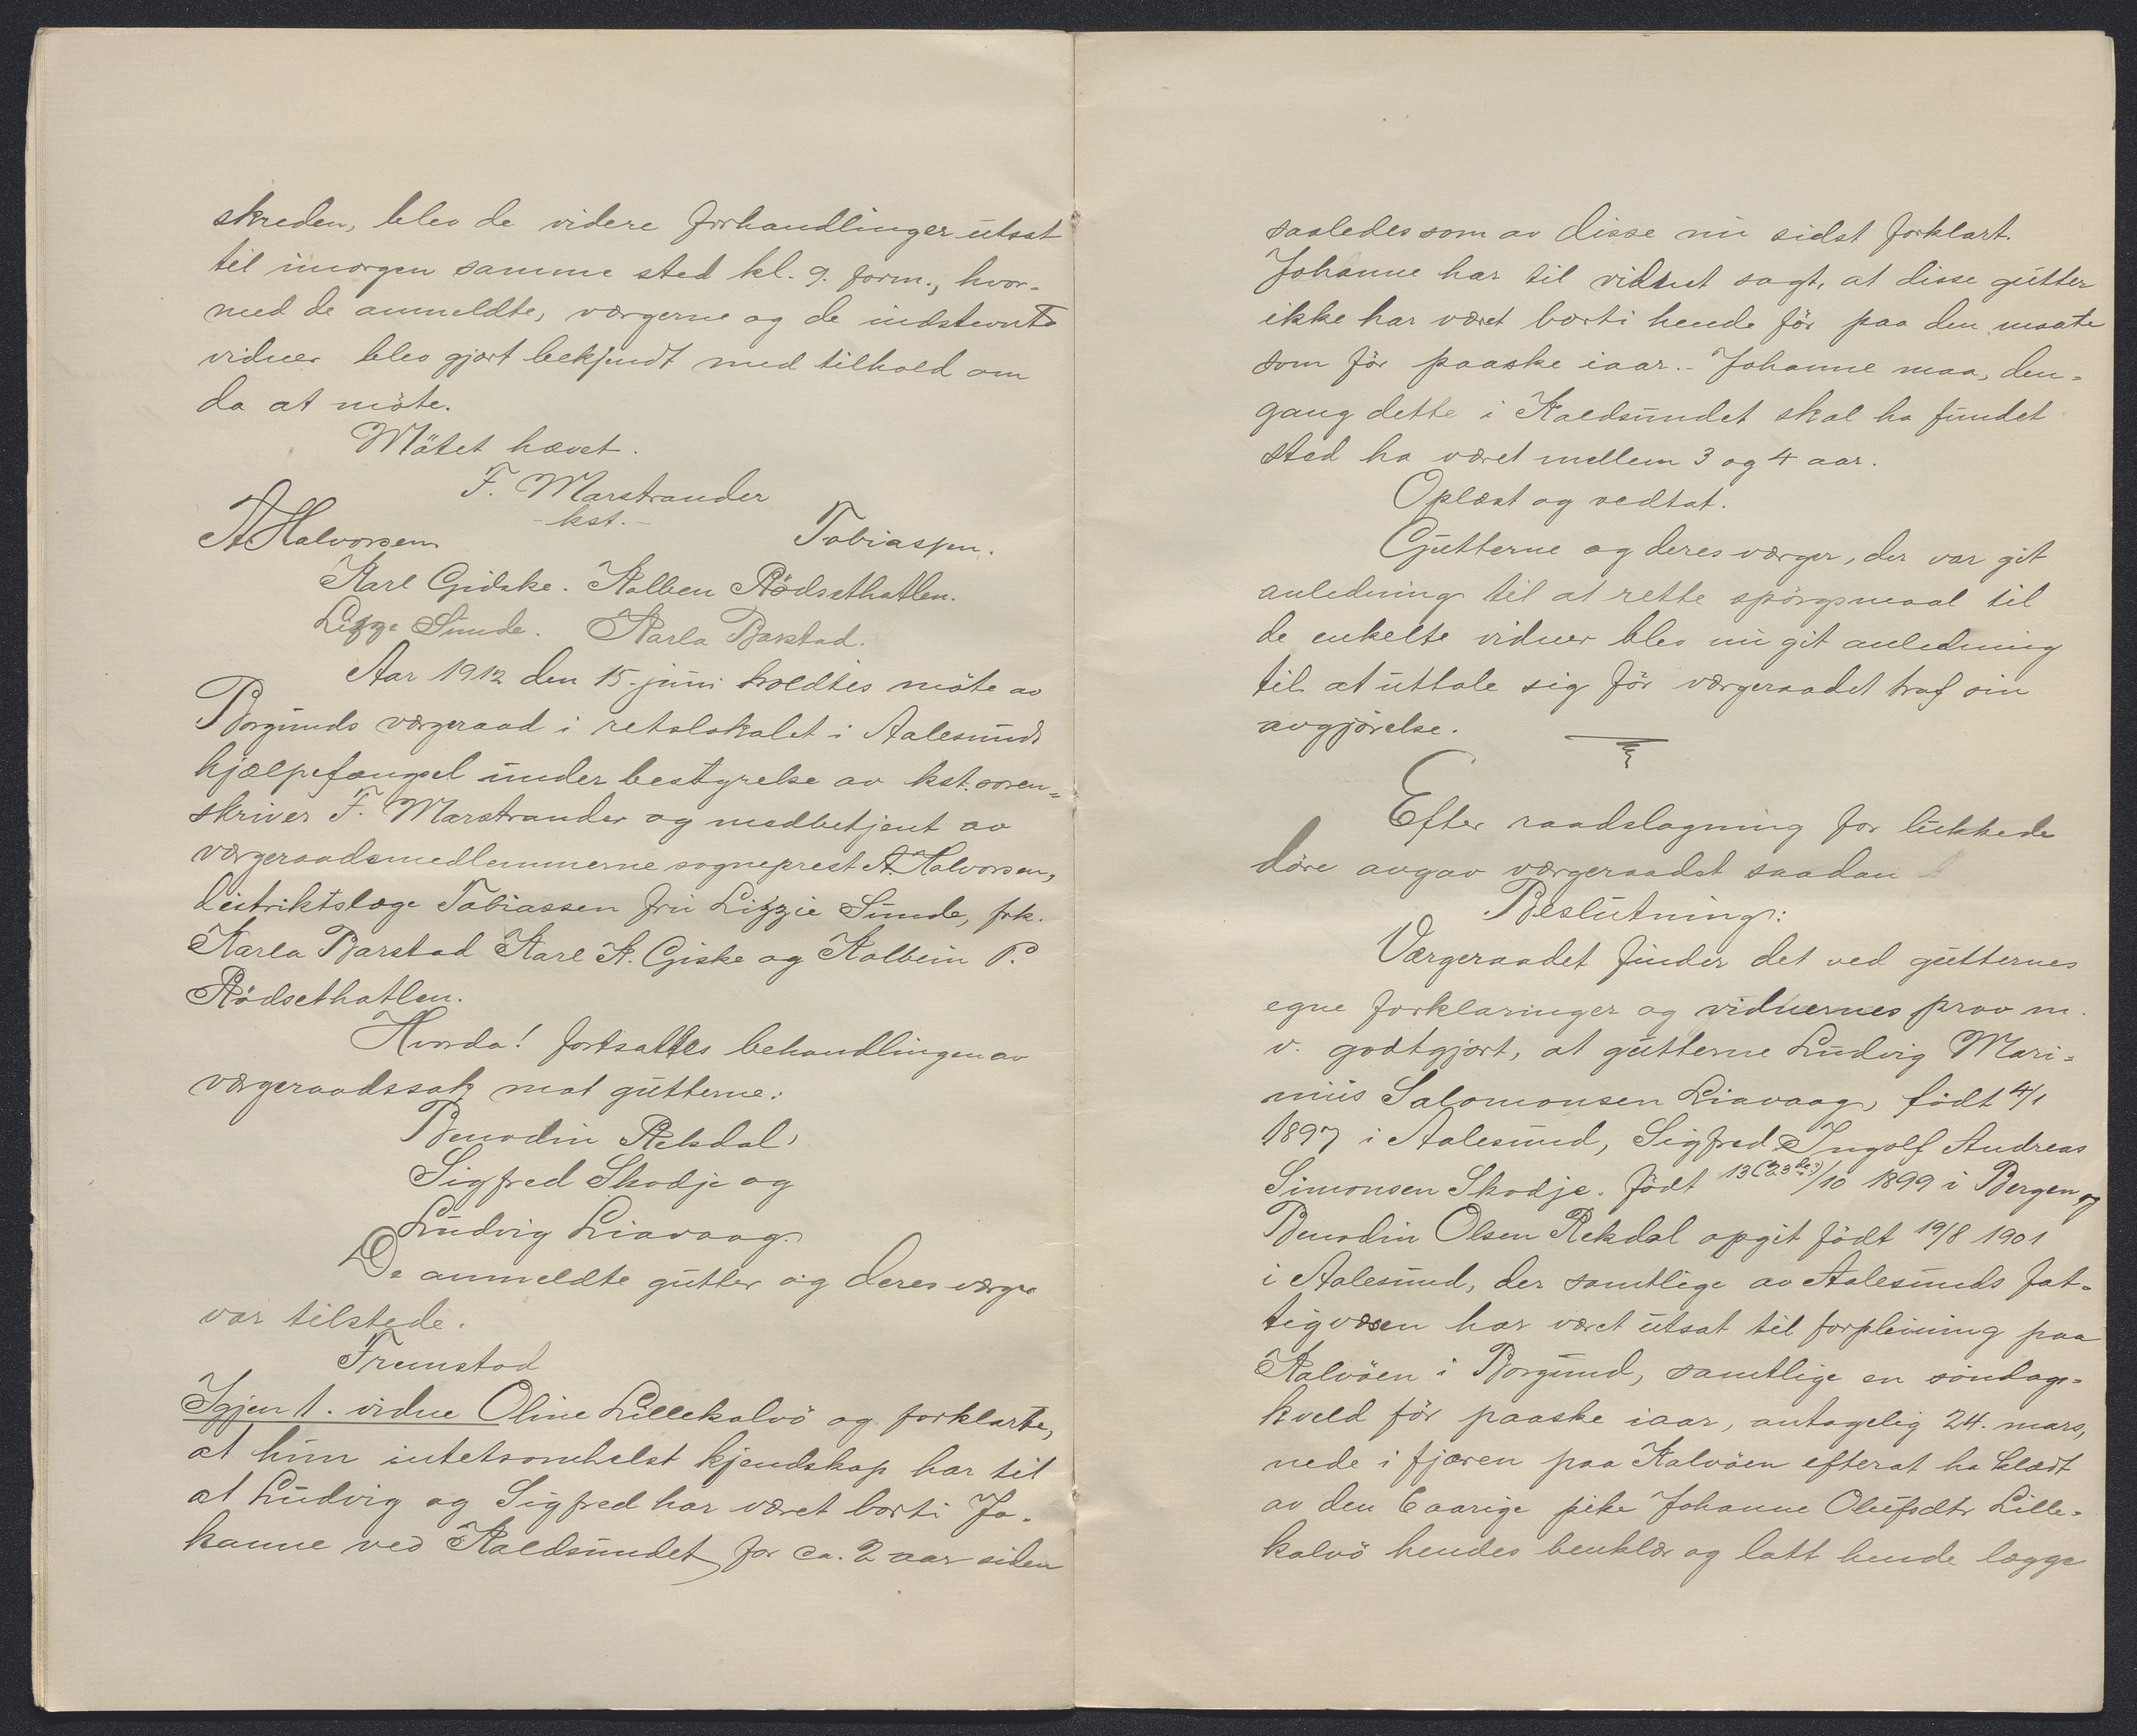 skreden, blev de videre forhandlinger utsat
til imorgen samme sted kl. 9. form., hvor-
med de anmeldte, værgerne og de indstevnte
vidner blev gjort bekjendt med tilhold om
da at möte.
Mötet hævet.
F. Marstrander
- kst. -
A Halvorsen. Tobiassen.
Karl Gidske. Kolben Rödsethatlen.
Lizzie Sunde. Karla Barstad.
Aar 1912 den 15. juni holdtes möte av
Borgunds værgeraad i retslokalet i Aalesunds
hjælpefængsel under bestyrelse av kst. soren-
skriver F. Marstrander og medbetjent av
værgeraadsmedlemmerne sogneprest A. Halvorsen,
distriktslæge Tobiassen fru Lizzie Sunde, frk.
Karla Barstad Karl K. Giske og Kolbein P.
Rödsethatlen.
Hvorda! fortsattes behandlingen av
værgeraadssak mot gutterne:
Benodin Rekdal,
Sigfred Skodje og
Ludvig Liavaag.
De anmeldte gutter og deres værger
var tilstede.
Fremstod
Igjen 1. vidne Oline Lillekalvö og forklarte,
at hun intetsomhelst kjendskap har til
at Ludvig og Sigfred har været borti Jo-
hanne ved Kaldsundet for ca. 2 aar siden
saaledes som av disse nu sidst forklart.
Johanne har til vidnet sagt, at disse gutter
ikke har været borti hende för paa den maate
som för paaske iaar. - Johanne maa, den-
gang dette i Kaldsundet skal ha fundet
sted ha været mellem 3 og 4 aar.
Oplæst og vedtat.
Gutterne og deres værger, der var git
anledning til at rette spörgsmaal til
de enkelte vidner blev nu git anledning
til at uttale sig för værgeraadet traf sin
avgjörelse.
Efter raadslagning for lukkede
döre avgav værgeraadet saadan
Beslutning:
Værgeraadet finder det ved gutternes
egne forklaringer og vidnernes prov m.
v. godtgjort, at gutterne Ludvig Mari-
nius Salomonsen Liavaag, födt 4/1
1897 i Aalesund, Sigfred Ingolf Andreas
Simonsen Skodje. födt 13 (23de?)/10 1899 i Bergen og
Benodin Olsen Rekdal opgit födt 19/8 1901
i Aalesund, der samtlige av Aalesunds fat-
tigvæsen har været utsat til forpleining paa
Kalvöen i Borgund, samtlige en söndags-
kveld för paaske iaar, antagelig 24. mars,
nede i fjæren paa Kalvöen efterat ha klædt
av den 6 aarige pike Johanne Olufsdtr Lille-
kalvö hendes benklær og latt hende lægge